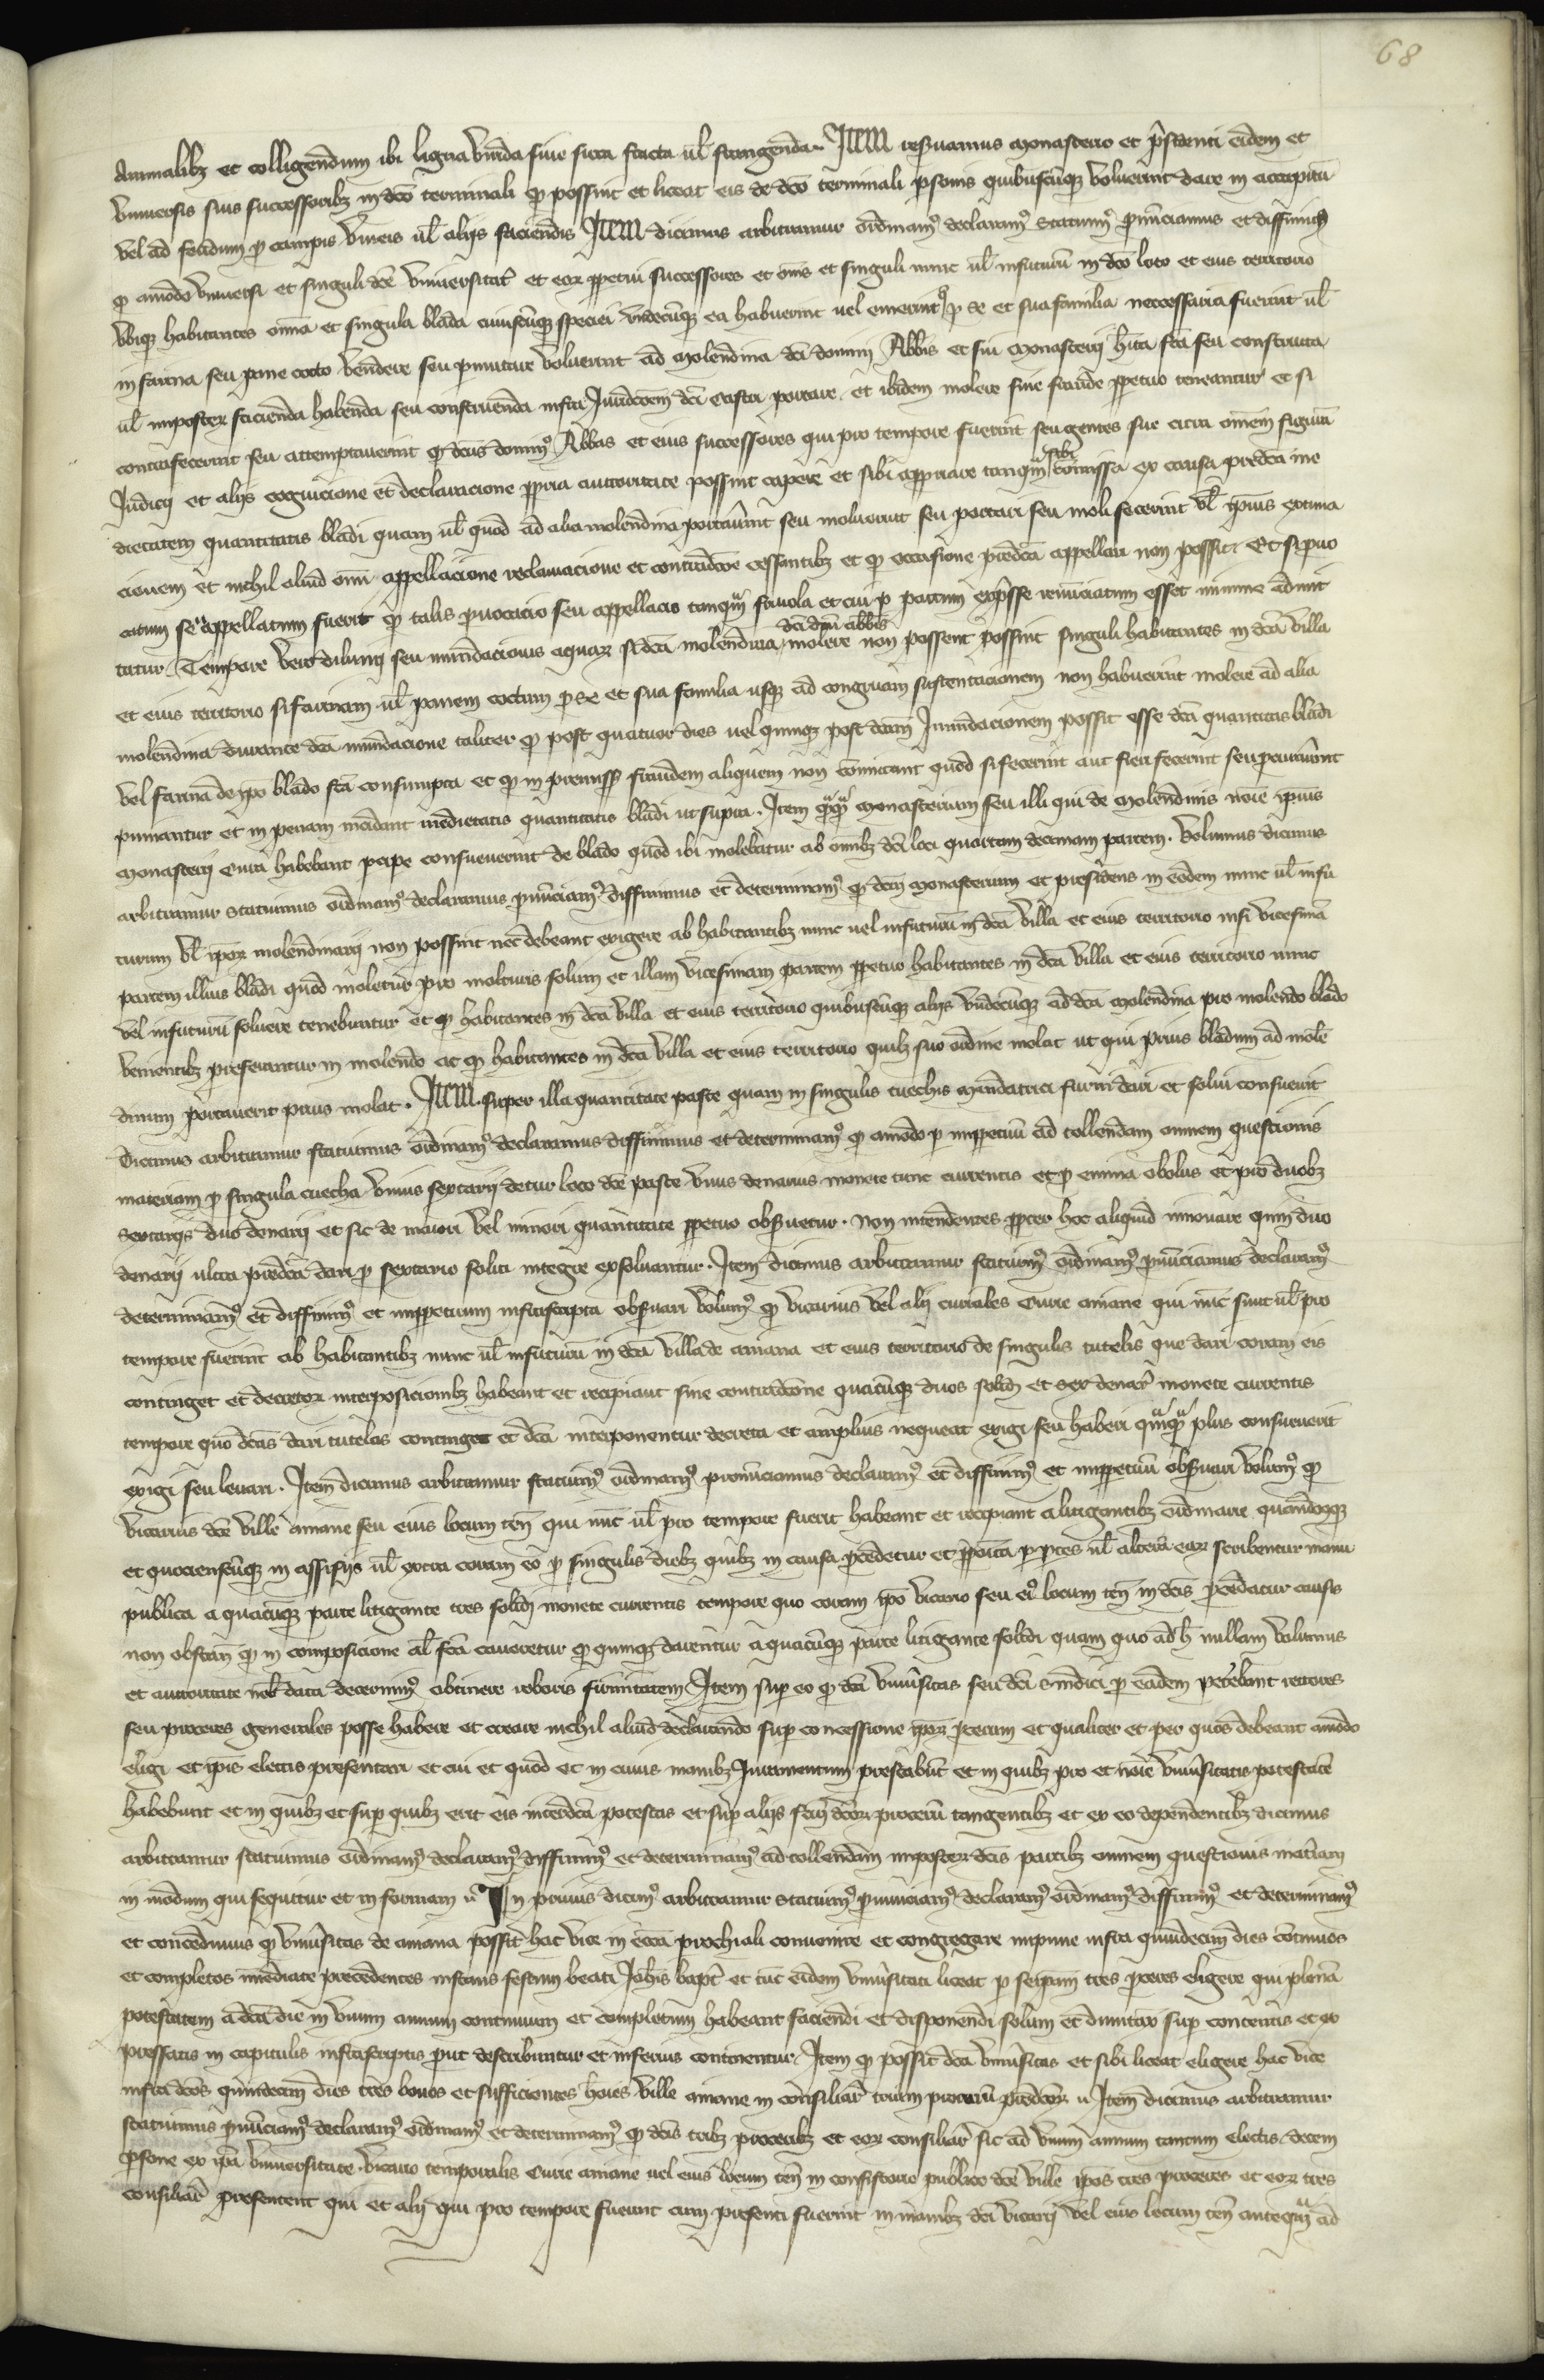 68
Animalibz et colligendum ibi ligna viridia siue sicca fracta ul' frangenda. Item reseruamus monasterio et presidenti eidem et
vniuersis suis successoribz in dco terminali qd possint et liceat eis de dco terminali psonis quibuscumqz voluerint dare in accapitum
vel ad feudum p campis vineis ul' alijs faciendis Item dicimus arbitramur ordinam9 declaram9 statuim9 pnunciamus et diffinim9
qd amodo vniuersi et singuli dce vniuersitatis et eor ppetui successores et oms et singuli nunc ul' infuturum in dco loco et eius territorio
vbiqz habitantes omnia et singula blada cuiuscumqz speciei vndecumqz ea habuerint uel emerint p se et sua familia neccessaria fuerint ul'
in farina seu pane cocto vendere seu pmutare voluerint ad molendina dci domini Abbis et sui monasterij iuxta facta seu constructa
ul' imposter facienda habenda seu construenda infra Iurisdcoem dci castri portare et ibidem molere sine fraude ppetuo teneantur et si
contrafecerint seu attemptauerint qd dcus domin9 Abbas et eius successores qui pro tempore fuerint seu gentes sue citra omnem figuram
Iudicij et alijs cognicione et declaracione ppria auctoritate possint capere et sibi appropriare tanqm sibi comissa ex causa predca me
dietatem quantitatis bladi quam ul' quod ad alia molendina portauerint seu moluerint seu portari seu moli fecerint ul' ipius extima
cionem et nichil aliud omni appellacione reclamacione et contradcoe cessantibz et qd occasione predca appellari non possit Et si puo
catum seu appellatum fuerit qd talis puocacio seu appellacio tanqm friuola et cui p partem expresse renunciatum esset minime admit
tatur. Tempore vero diluuij seu inundacionis aquar si dca molendina dci dni abbis molere non possent possint singuli habitantes in dca villa
et eius territorio si farinam ul' panem coctum p se et sua familia usqz ad congruam sustentacionem non habuerint molere ad alia
molendina durante dca inundacione taliter qd post quatuor dies uel quinqz post dcam Inundacionem possit esse dca quantitas bladi
vel farina de ipo blado fca consumpta et qd in premissis fraudem aliquam non comitant quod si fecerint aut fieri fecerint seu pcurauerint
puniantur et in penam incidant medietatis quantitatis bladi ut supra. Item qmqm monasterium seu illi qui de molendinis noie ipius
monasterij curam habebant pcipe consueuerint de blado quod ibi molebatur ab omibz dci loci quartam decimam partem. Volumus dicimus
arbitramur statuimus ordinam9 declaramus pnunciam9 diffinimus et determinam9 qd dcm monasterium et presidens in eodem nunc ul' infu
turum vl' ipor molendinarij non possint nec debeant exigere ab habitantibz nunc uel infuturum in dca villa et eius territorio nisi vicesimam
partem illius bladi quod moletur pro molturis solum et illam vicesimam partem ppetuo habitantes in dca villa et eius territorio nunc
vel infuturum soluere tenebuntur et qd habitantes in dca villa et eius territorio quibuscumqz alijs vndecumqz ad dca molendina pro molendo blado
venientibz preferantur in molendo ac qd habitantes in dca villa et eius territorio quilz suo ordine molat ut qui prius bladum ad molen
dinum portauerit prius molat. Item super illa quantitate paste quam in singulis cuechis mandatrici furni dari et solui consueuit
Dicimus arbitramur statuimus ordinam9 declaramus diffinimus et determinam9 qd amodo p imppetuum ad tollendam omnem questionis
materiam p singula cuecha vnius sextarij detur loco dce paste vnus denarius monete tunc currentis et p emina obolus et pro duobz
sextarijs duo denarij et sic de maiori vel minori quantitate ppetuo obseruetur. non intendentes ppter hoc aliquid innouare quin duo
denarij ultra predca dari p sextario soliti integre exsoluantur. Item dicimus arbitramur statuim9 ordinam9 pnunciamus declaram9
determinam9 et diffinim9 et imppetuum infrascripta obseruari volum9 qd vicarius vel alij curiales Curie aniane qui nunc sunt ul' pro
tempore fuerint ab habitantibz nunc ul' infuturum in dca villa de aniana et eius territorio de singulis tutelis que dari coram eis
continget et decretor interposicionibz habeant et recipiant sine contradcone quacumqz duos solid et sex denar monete currentis
tempore quo dcas dari tutelas continget et dca interponentur decreta et amplius nequeat exigi seu haberi qmqm plus consueuerit
exigi seu leuari. Item dicimus arbitramur statuim9 ordinam9 pronunciamus declaram9 et diffinim9 et imppetuum obseruari volum9 qd
vicarius dce ville aniane seu eius locum ten qui nunc ul' pro tempore fuerit habeant et recipiant a litigantibz ordinarie quandocumqz
et quocienscumqz in assisijs ul' extra coram eo p singulis diebz quibz in causa procedetur et pposita p ptes ul' alteram ear scribentur manu
publica a quacumqz parte litigante tres solid monete currentis tempore quo coram ipo vicario seu ei9 locum ten in dcis procedatur causis
non obstan qd in composicione al' fca caueretur qd quinqz darentur a quacumqz parte litigante solidi quam quo ad h nullam volumus
et auctoritate nob data decernim9 obtinere roboris firmitatem Item sup eo qd dca vniuersitas seu dci sindici p eadem petebant rectores
seu proceres generales posse habere et creare nichil aliud declarando sup concessione ipor procerum et qualiter et per quos debeant amodo
eligi et ipis electis presentari et cui et quod et in cuius manibz Iuramentum prestabunt et in quibz pro et noie vniuersitatis potestatem
habebunt et in quibz et sup quibz erit eis interdca potestas et sup alijs fcm dcor procerum tangentibz et ex eo dependentibz dicimus
arbitramur statuimus ordinam9 declaram9 diffinim9 et determinam9 ad tollendam imposter dcis partibz omnem questionis materiam
in modum qui sequitur et in formam In primis dicim9 arbitramur statuim9 pnunciam9 declaram9 ordinam9 diffinim9 et determinam9
et concedimus qd vniuersitas de aniana possit hac vice in ecca parochiali conuenire et congregare impune infra quindecim dies continuos
et completos inmediate precedentes instans festum beati Iohis bapt et tunc eidem vniuersitati liceat p seipsam tres proceres eligere qui plenam
potestatem a dca die in vnum annum continuum et completum habeant faciendi et disponendi solum et dumtax sup contentis et ex
pressatis in capitulis infrascriptis put describuntur et inferius continentur. Item qd possit dca vniuersitas et sibi liceat eligere hac vice
infra dcos quindecim dies tres bonos et sufficientes hoies ville aniane in consiliar trium procerum predcor Item dicimus arbitramur
statuimus pnunciam9 declaram9 ordinam9 et determinam9 qd dcis tribz proceribz et eor consiliar sic ad vnum annum tantum electis decem
psone ex ipa vniuersitate. vicario temporalis Curie aniane uel eius locum ten in consistorio publico dce ville ipos tres proceres et eor tres
consiliar presentent qui et alij qui pro tempore fuerint cum presenti fuerint in manibz dci vicarij vel eius locum ten anteqm ad